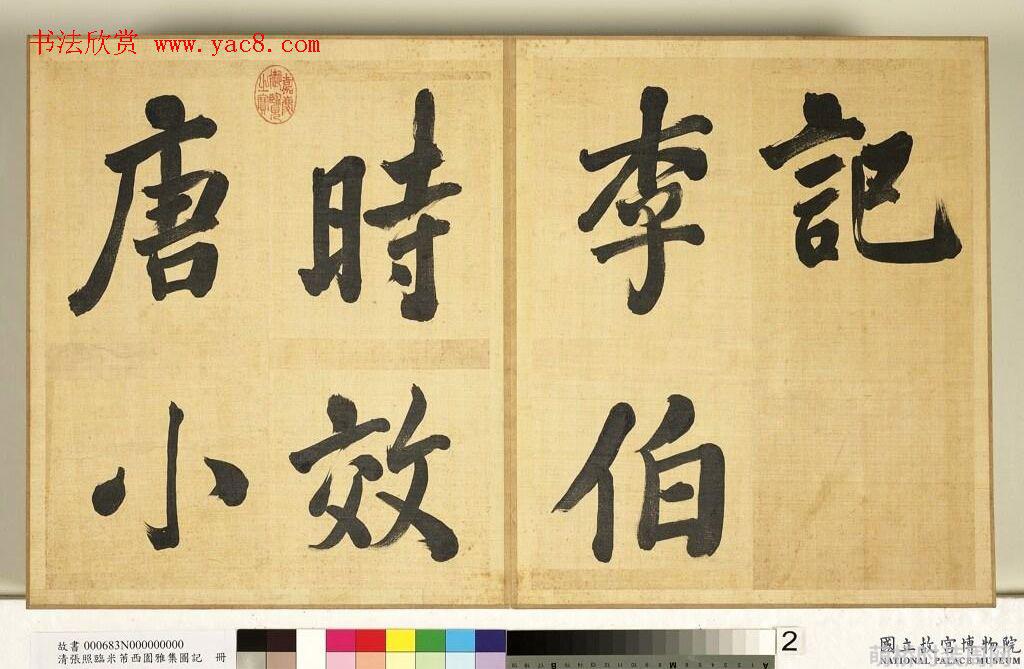 书法欣赏 www.yac8.com
記
李伯
時效
唐小
嘉慶御覽之寶
故書 000683N000000000
清張照臨米芾西園雅集圖記 冊
2
國立故宮博物院
NATIONAL PALACE MUSEUM